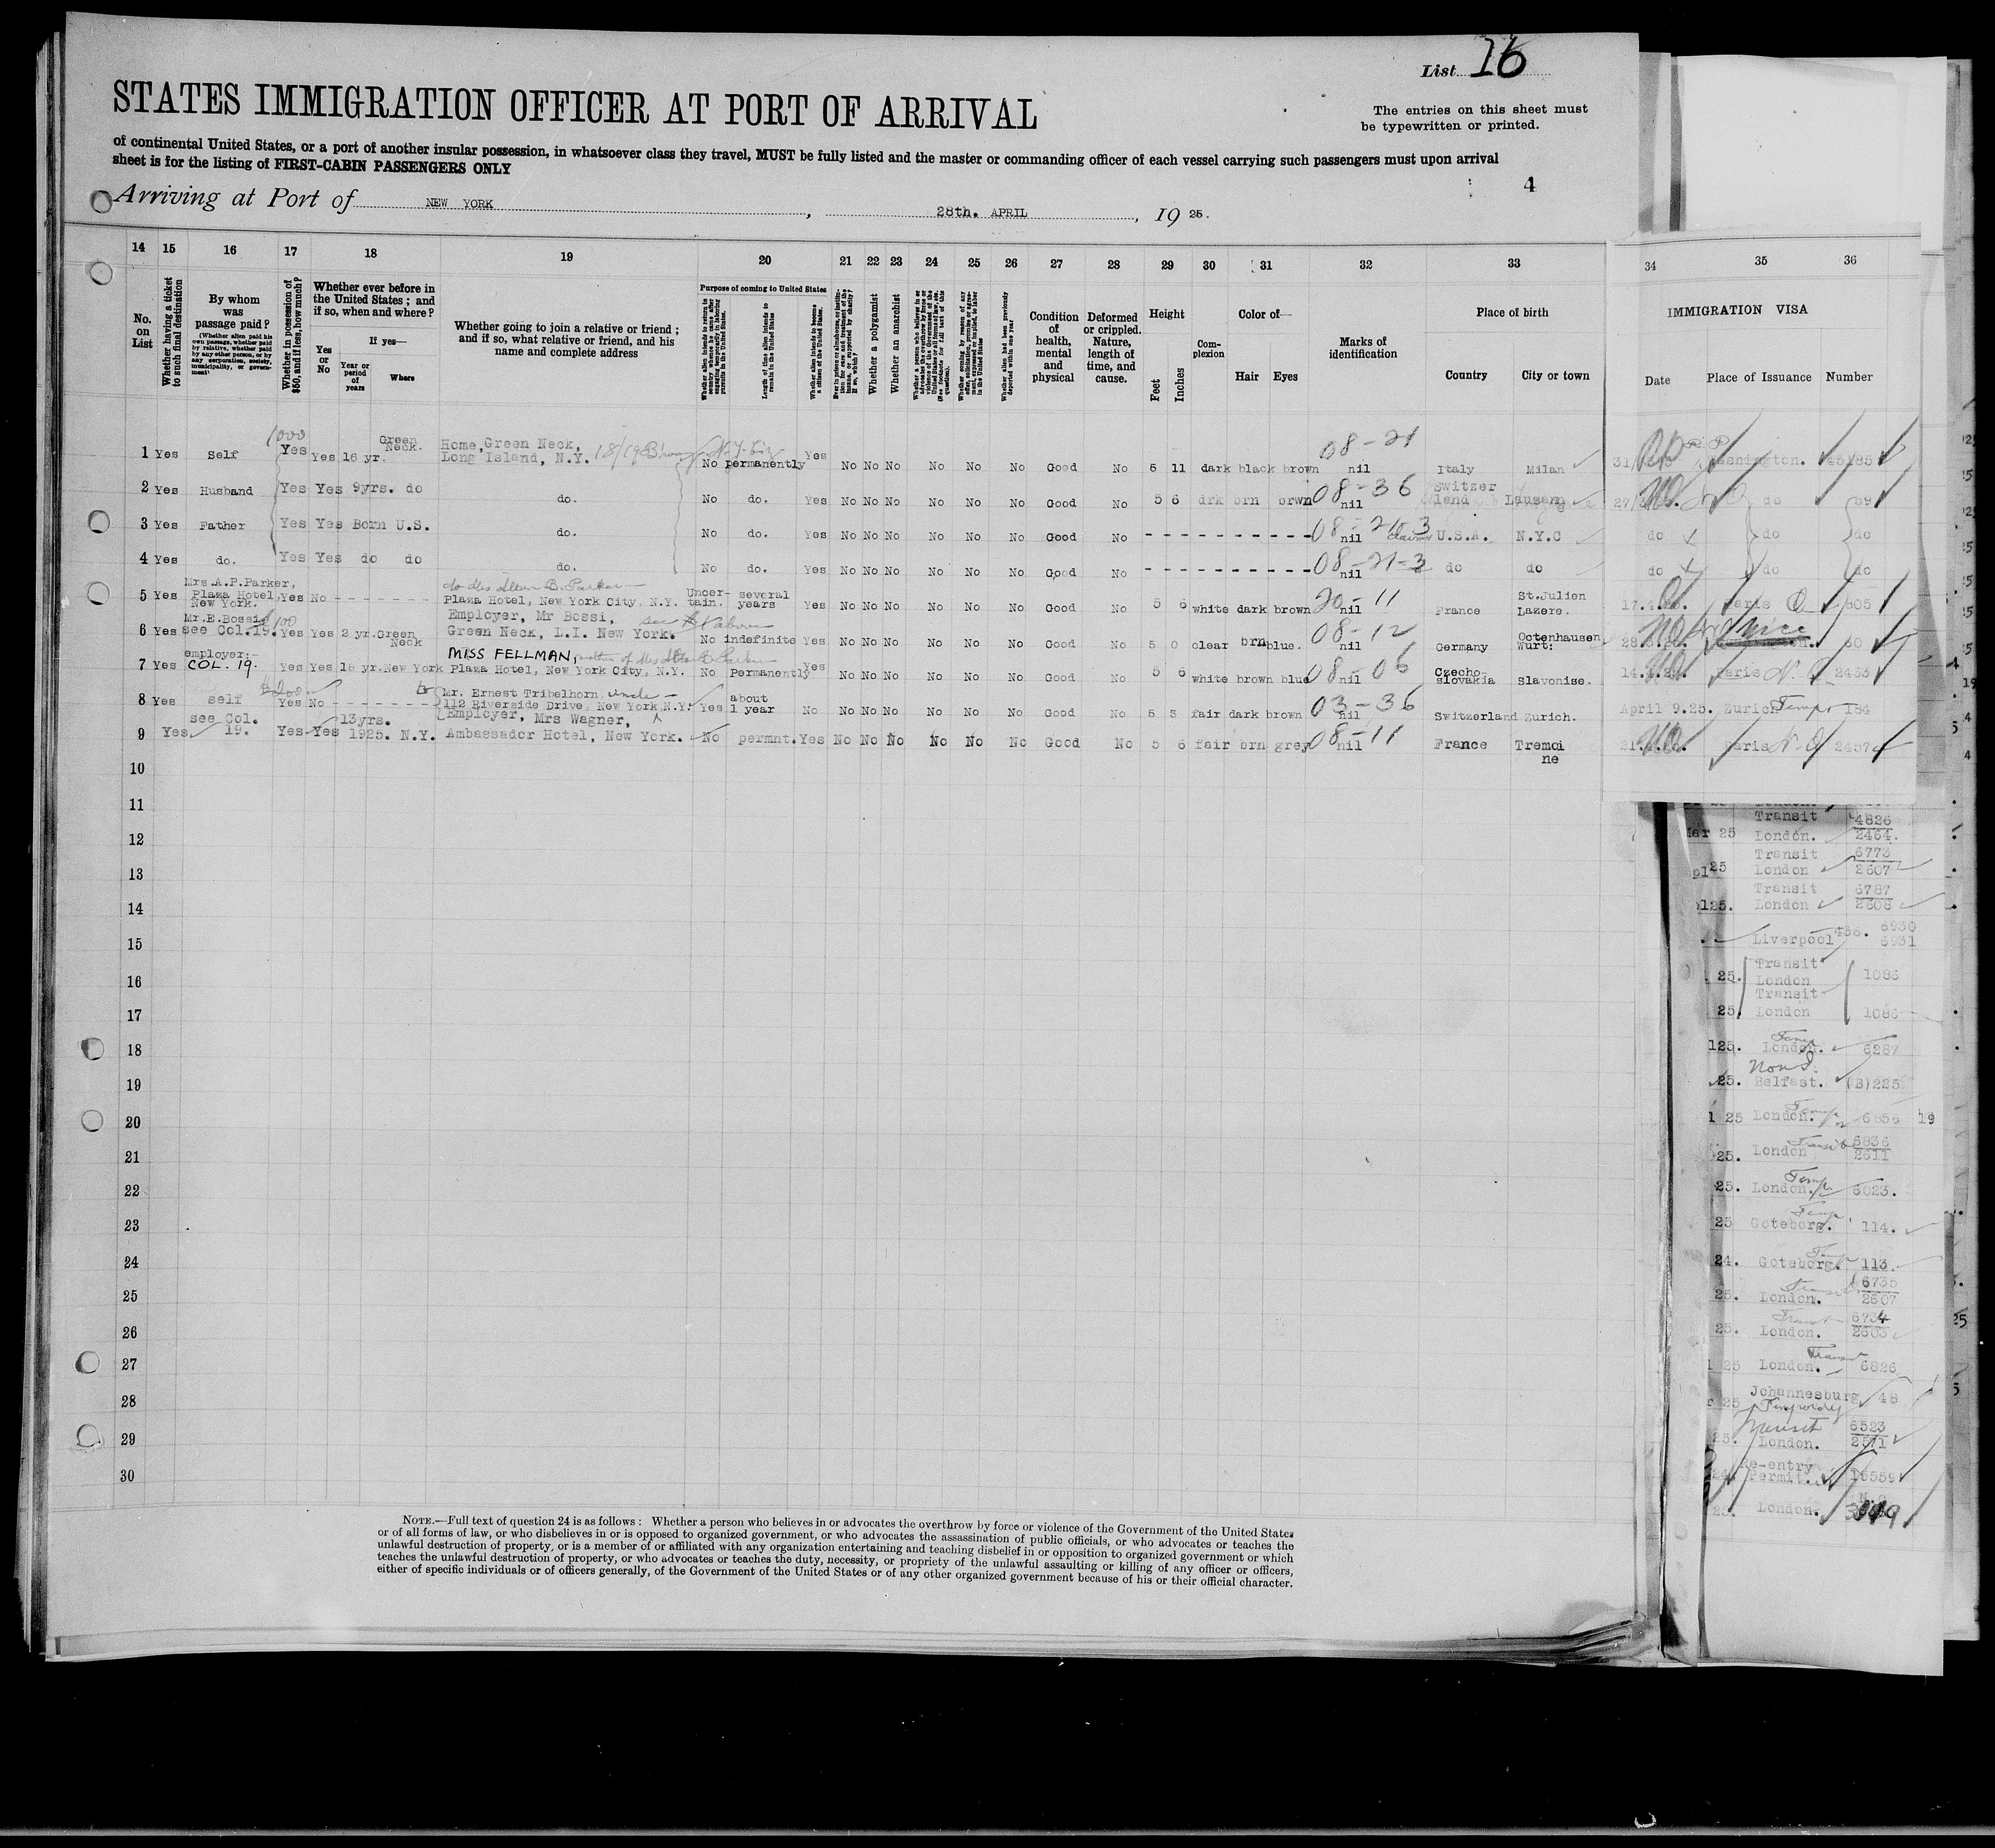 List 16
STATES IMMIGRATION OFFICER AT PORT OF ARRIVAL
The entries on this sheet must
be typewritten or printed.
of continental United States, or a port of another insular possession, in whatsoever class they travel, MUST be fully listed and the master or commanding officer of each vessel carrying such passengers must upon arrival
sheet is for the listing of FIRST-CABIN PASSENGERS ONLY
4
Arriving at Port of NEW YORK, 28th. APRIL, 19 25.
14 15 16 17 18 19 20 21 22 23 24 25 26 27 28 29 30 31 32 33 34 35 36
No. on List
Whether having a ticket to such final destination
By whom was passage paid?
(Whether alien paid his own passage, whether paid by relative, whether paid by any other person, or by any corporation, society, municipality, or government)
Whether in possession of $50, and if less, how much?
Whether ever before in the United States; and if so, when and where?
Yes or No
If yes—
Year or period of years
Where
Whether going to join a relative or friend; and if so, what relative or friend, and his name and complete address
Purpose of coming to United States
Length of time alien intends to remain in the United States
Whether alien intends to become a citizen of the United States.
Whether a polygamist
Whether an anarchist
Whether alien had been previously deported within one year
Condition of health, mental and physical
Deformed or crippled. Nature, length of time, and cause.
Height
Feet
Inches
Complexion
Color of—
Hair Eyes
Marks of identification
Place of birth
Country City or town
IMMIGRATION VISA
Date Place of Issuance Number
1 Yes Self 1000 Yes Yes 16 yr. Green Neck. Home, Green Neck, Long Island, N.Y. No permanently Yes No No No No No No Good No 5 11 dark black brown 08-21 nil Italy Milan
2 Yes Husband Yes Yes 9yrs. do do. No do. Yes No No No No No No Good No 5 6 drk brn brwn 08-36 nil Switzer land Lausann
3 Yes Father Yes Yes Born U.S. do. No do. Yes No No No No No No Good No - - - - - - - - - - nil U.S.A. N.Y.C do do do
4 Yes do. Yes Yes do do do. No do. Yes No No No No No No Good No - - - - - - - - - - 08-21-3 nil do do do do do
5 Yes Mrs.A.P.Parker, Plaza Hotel, New York. Yes No - - - - - - Plaza Hotel, New York City, N.Y. Uncertain. several years Yes No No No No No No Good No 5 6 white dark brown 20-11 nil France St.Julien Lazere.
6 Yes Mr.E.Bossi see Col.19. 100 Yes Yes 2 yr. Green Neck Employer, Mr Bossi, see above Green Neck, L.I. New York. No indefinite Yes No No No No No No Good No 5 0 clear brn blue. 08-12 nil Germany Octenhausen Wurt: Nice
7 Yes employer:- COL. 19. Yes Yes 18 yr. New York MISS FELLMAN, Plaza Hotel, New York City, N.Y. No Permanently Yes No No No No No No Good No 5 6 white brown blue 08-06 nil Czecho-slovakia Slavonise. Paris 2433
8 Yes self $200 Yes No - - - - - - to Mr. Ernest Tribelhorn, uncle - 112 Riverside Drive, New York N.Y. Yes about 1 year No No No No No No No Good No 5 3 fair dark brown 03-36 nil Switzerland Zurich. April 9.25. Zurich Temp 184
9 Yes see Col. 19. Yes Yes 13yrs. 1925. N.Y. Employer, Mrs Wagner, Ambassador Hotel, New York. No permnt. Yes No No No No No No Good No 5 6 fair brn grey 08-11 nil France Tremoi ne Paris 2457
10
11
12
13
14
15
16
17
18
19
20
21
22
23
24
25
26
27
28
29
30
Transit 4826
Mar 25 London. 2464.
Transit 6773
25 London 2607
Transit 6787
25. London 2608
Liverpool 6930
6931
Transit
25. London 1086
Transit
25. London 1086
Temp
25. London. 6287
25. Belfast. (B)225
25 London. Temp 6856 19
Transit 6836
25. London 2611
Temp
25. London. 6023.
Temp
25 Goteborg. 114.
Temp
24. Goteborg. 113
6735
25. London. 2607
6734
25. London. 2603
25 London. 6826
Johannesburg 48
25
Transit 6523
25. London. 2571
Re-entry
24 Permit. 16559
London.
NOTE.—Full text of question 24 is as follows: Whether a person who believes in or advocates the overthrow by force or violence of the Government of the United States
or of all forms of law, or who disbelieves in or is opposed to organized government, or who advocates the assassination of public officials, or who advocates or teaches the
unlawful destruction of property, or is a member of or affiliated with any organization entertaining and teaching disbelief in or opposition to organized government or which
teaches the unlawful destruction of property, or who advocates or teaches the duty, necessity, or propriety of the unlawful assaulting or killing of any officer or officers,
either of specific individuals or of officers generally, of the Government of the United States or of any other organized government because of his or their official character.